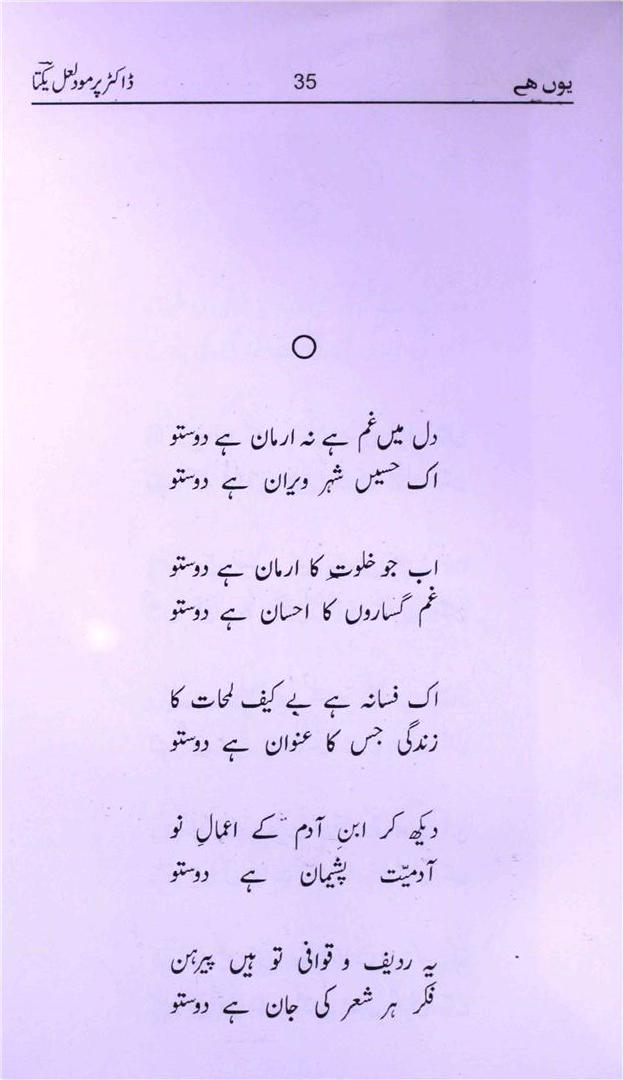 یوں ھے 35 ڈاکٹر پرمود لعل یکتاؔ
دل میں غم ہے نہ ارمان ہے دوستو
اک حسیں شہر ویران ہے دوستو
اب جو خلوت کا ارمان ہے دوستو
غم گساروں کا احسان ہے دوستو
اک فسانہ ہے بے کیف لمحات کا
زندگی جس کا عنوان ہے دوستو
دیکھ کر ابنِ آدم کے اعمالِ نو
آدمیّت پشیمان ہے دوستو
یہ ردیف و قوافی تو ہیں پیرہن
فکر ہر شعر کی جان ہے دوستو